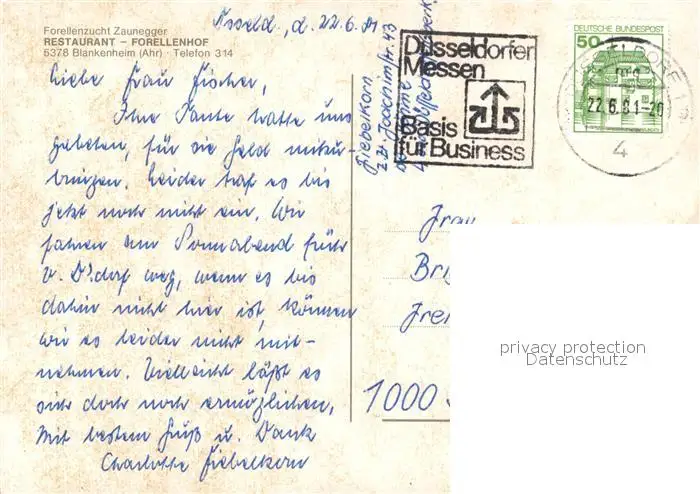 Forellenzucht Zaunegger
RESTAURANT – FORELLENHOF
5378 Blankenheim (Ahr) · Telefon 314
d. 22.6.81
Liebe Frau Fischer,
Ihre Tante hatte uns
gebeten, für sie Geld mitzu-
bringen. Leider traf es bis
jetzt noch nicht ein. Wir
fahren am Sonnabend früh
v. D'dorf weg, wenn es bis
dahin nicht hier ist, können
wir es leider nicht mit-
nehmen. Vielleicht läßt es
sich doch noch ermöglichen.
Mit bestem Gruß u. Dank
Charlotte Fiebelkorn
Fiebelkorn
z.Zt. Joachimstr. 43
Düsseldorfer
Messen
Basis
für Business
DEUTSCHE BUNDESPOST
50
22.6.81-20
4
Frau
1000
privacy protection
Datenschutz